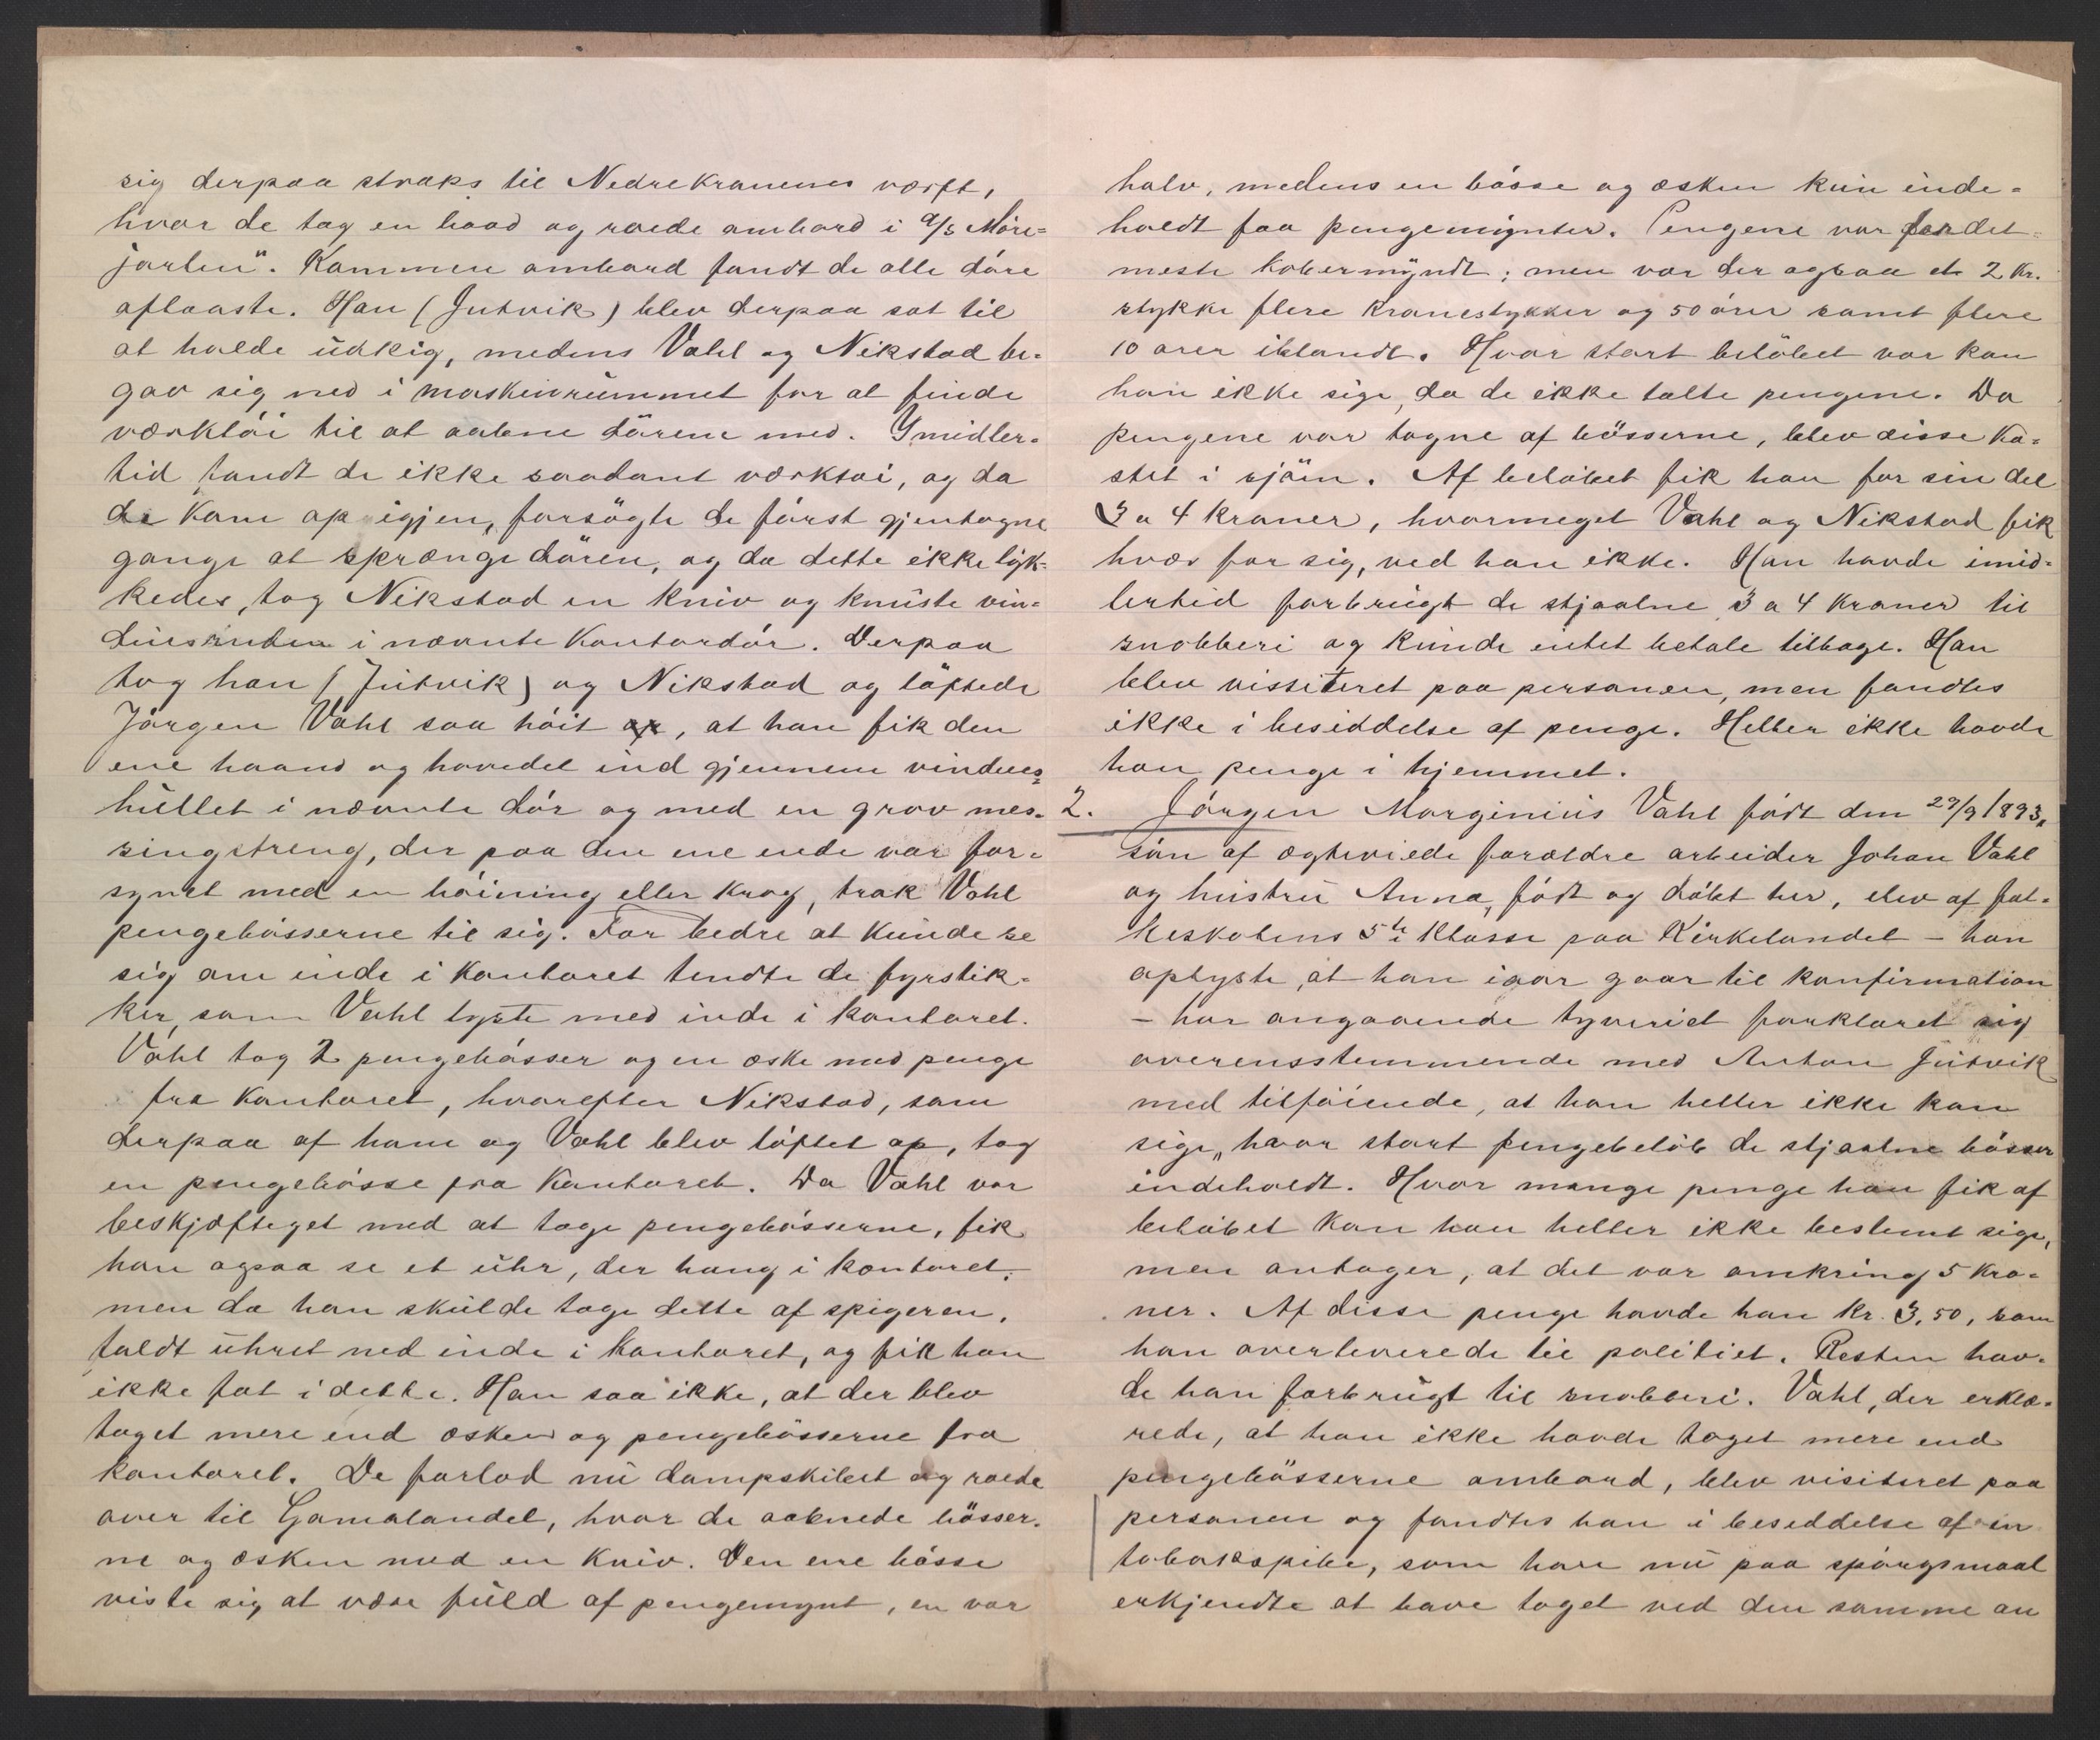 sig derpaa straks til Nedrekranenes værft,
hvor de tog en baad og roede ombord i d/s Märe=
jarlen". Kommen ombord fandt de alle döre
aflaaste. Han (Jutvik) blev derpaa sat til
at holde udkig, medens Vahl og Nikstad be=
gav sig ned i maskinrummet for at finde
værktöi til at aabne dörene med. Ymidler=
tid fandt de ikke saadant værktöi, og da
de kom op igjen, forsögte de först gjentagne
gange at sprænge dören, og da dette ikke lyk=
kedes, tog Nikstad en kniv og knuste vin=
duesruden i nævnte kontordör. Derpaa
tog han (Jutvik) og Nikstad og löftede
Jörgen Vahl saa höit op, at han fik den
ene haand og hovedet ind gjennem vindues=
hullet i nævnte dör og med en grov mes=
singstreng, der paa den ene ende var for=
synet med en böining eller krog, trak Vahl
pengebösserne til sig. For bedre at kunde se
sig om inde i kontoret tendte de fyrstik=
ker, som Vahl lyste med inde i kontoret.
Vahl tog 2 pengebösser og en æske med penge
fra kontoret, hvorefter Nikstad, som
derpaa af ham og Vahl blev löftet op, tog
en pengebösse fra kontoret. Da Vahl var
beskjæftiget med at tage pengebösserne, fik
han ogsaa se et uhr, der hang i kontoret;
men da han skulde tage dette af spigeren,
faldt uhret ned inde i kontoret, og fik han
ikke fat i dette. Han saa ikke, at der blev
taget mere end æsken og pengebösserne fra
kontoret. De forlod nu dampskibet og roede
over til Gomalandet, hvor de aabnede bösser=
ne og æsken med en kniv. Den ene bösse
viste sig at være fuld af pengemynt, en var
halv, medens en bösse og æsken kun inde=
holdt faa pengemynter. Pengene var for det=
meste kobermyndt; men var der ogsaa et 2 Kr.
stykke flere kronestykker og 50 örer samt flere
10 ører iblandt. Hvor stort belöbet var kan
han ikke sige, da de ikke talte pengene. Da
pengene var tagne af bösserne, blev disse ka=
stet i sjöen. Af belöbet fik han for sin del
3 a 4 kroner, hvormeget Vahl og Nikstad fik
hver for sig, ved han ikke. Han havde imid=
lertid forbrugt de stjaalne 3 a 4 kroner til
snobberi og kunde intet betale tilbage. Han
blev vissiteret paa personen, men fandtes
ikke i besiddelse af penge. Heller ikke havde
han penge i hjemmet.
2. Jörgen Marginius Vahl födt den 29/9 1893,
sön af ægteviede forældre arbeider Johan Vahl
og hustru Anna, födt og döbt her, elev af fol=
keskolens 5te klasse paa Kirkelandet – han
oplyste, at han iaar gaar til konfirmation
– har angaaende tyveriet forklaret sig
overensstemmende med Anton Jutvik
med tilföiende, at han heller ikke kan
sige, hvor stort pengebelöb de stjaalne bösser
indeholdt. Hvor mange penge han fik af
belöbet kan han heller ikke bestemt sige,
men antager, at det var omkring 5 kro=
ner. Af disse penge havde han kr. 3,50, som
han overleverede til politiet. Resten hav=
de han forbrugt til snobberi. Vahl, der erklæ=
rede, at han ikke havde taget mere end
pengebösserne ombord, blev visiteret paa
personen og fandtes han i besiddelse af en
tobakspibe, som han nu paa spörgsmaal
erkjendte at have taget ved den samme an